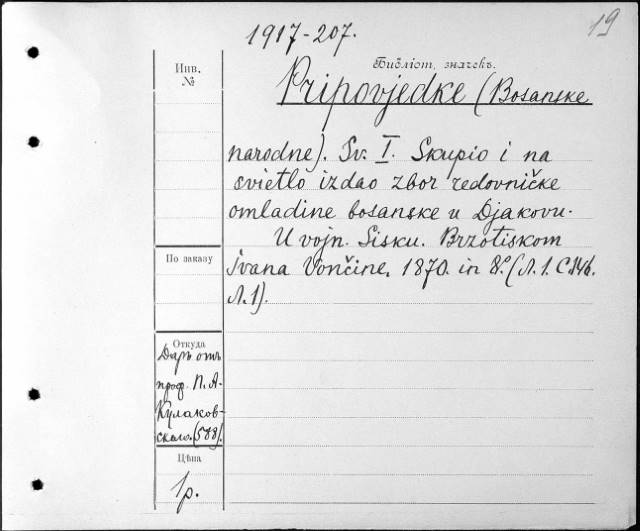 1917-207.
19
Инв.
№
Библіот. значекъ.
Pripovjedke (Bosanske
narodne). Sv. I. Skupio i na
svietlo izdao zbor redovničke
omladine bosanske u Djakovu.
U vojn. Sisku. Brzotiskom
Ivana Vončine. 1870. in 8º. (Л. 1. С. 146.
Л. 1).
По заказу
Откуда
Даръ отъ
проф. П. А.
Кулаков-
скаго. (588).
Цѣна
1р.